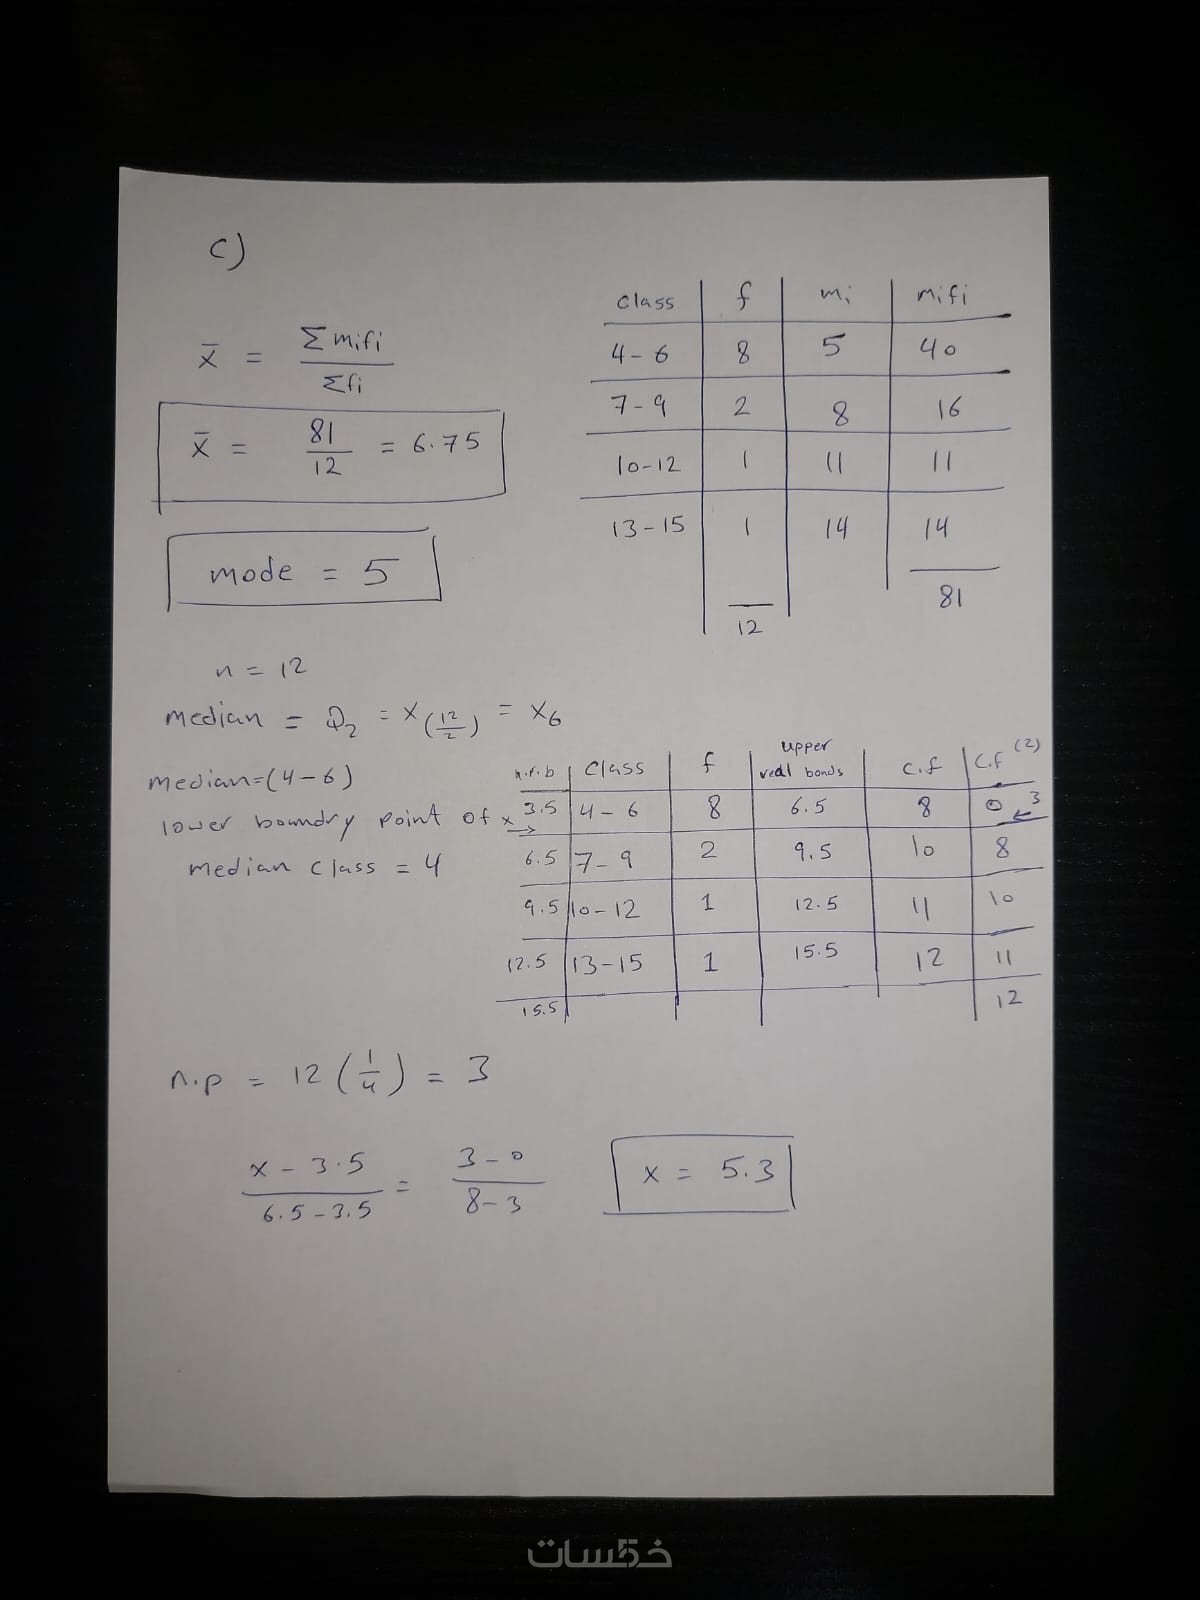 c)
x̄ = Σmifi / Σfi
x̄ = 81/12 = 6.75
mode = 5
class f mi mifi
4-6 8 5 40
7-9 2 8 16
10-12 1 11 11
13-15 1 14 14
12 81
n = 12
median = Q2 = X(12/2) = X6
median=(4-6)
lower boundry point of
median class = 4
class f upper real bonds c.f c.f (2)
x → 3.5 4-6 8 6.5 8 0 ← 3
6.5 7-9 2 9.5 10 8
9.5 10-12 1 12.5 11 10
12.5 13-15 1 15.5 12 11
15.5 12
n.p = 12 (1/4) = 3
(x - 3.5)/(6.5 - 3.5) = (3-0)/(8-3)
x = 5.3
خمسات